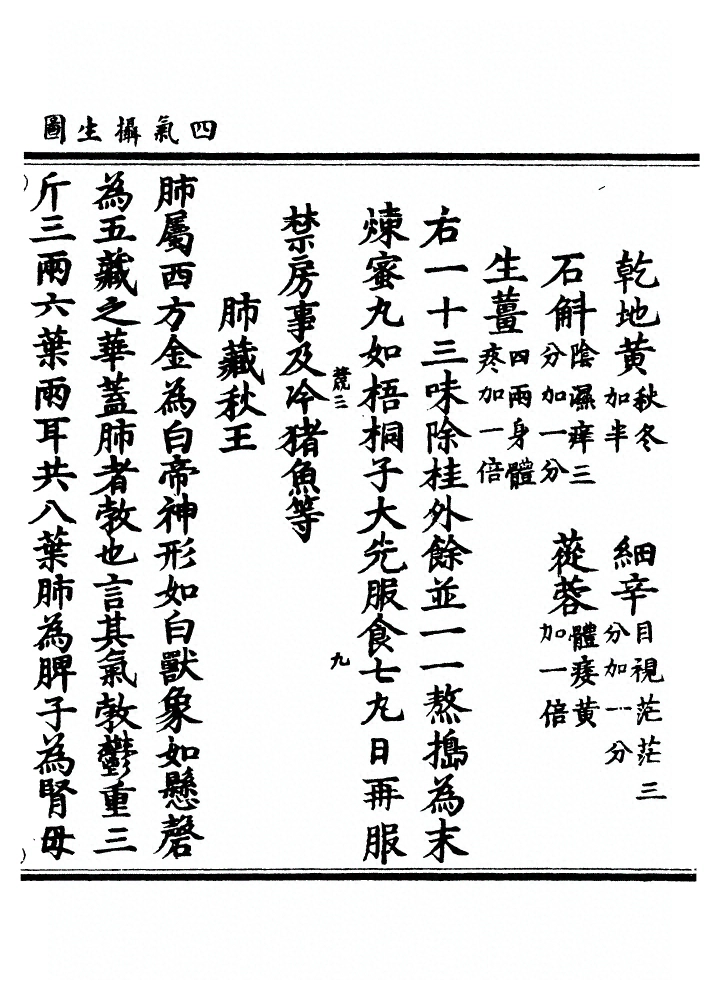 四氣攝生圖
乾地黄秋冬加半 細辛目視茫茫三分加一分
石斛陰濕痒三分加一分 蓯蓉體痿黄加一倍
生薑四兩身體疼加一倍
右一十三味除桂外餘並一一熬搗為末
煉蜜九如梧桐子大先服食七九日再服
禁房事及冷猪魚等
薨三
九
肺藏秋王
肺屬西方金為白帝神形如白獸象如懸磬
為五藏之華蓋肺者敦也言其氣敦鬱重三
斤三兩六葉兩耳共八葉肺為脾子為腎母